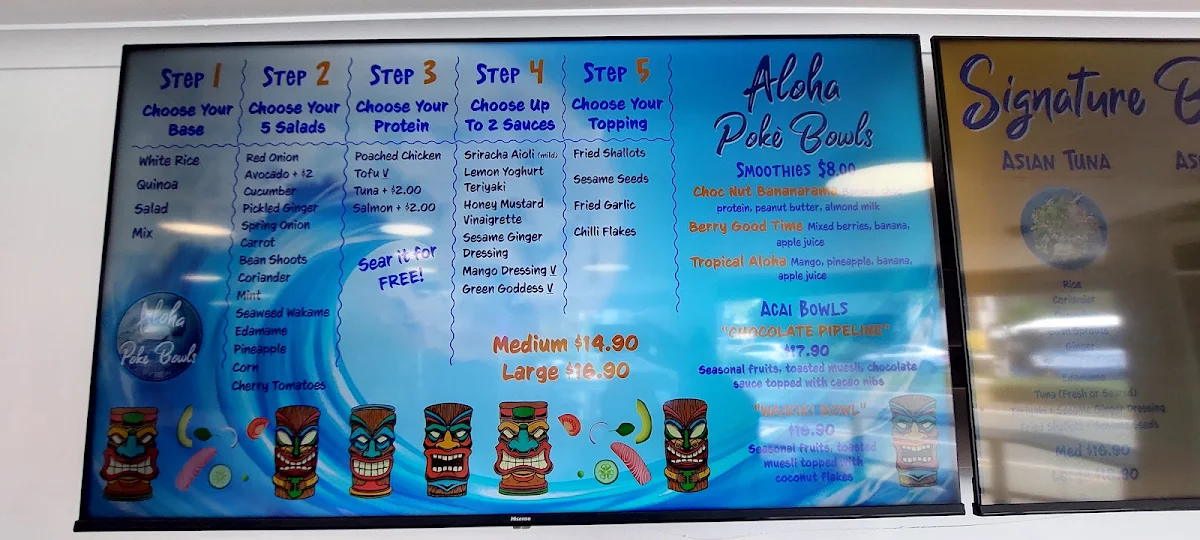 Step 1
Choose Your
Base
White Rice
Quinoa
Salad
Mix
Aloha
Poké Bowls
Step 2
Choose Your
5 Salads
Red Onion
Avocado + $2
Cucumber
Pickled Ginger
Spring Onion
Carrot
Bean Shoots
Coriander
Mint
Seaweed Wakame
Edamame
Pineapple
Corn
Cherry Tomatoes
Step 3
Choose Your
Protein
Poached Chicken
Tofu V
Tuna + $2.00
Salmon + $2.00
Sear it for
FREE!
Step 4
Choose Up
To 2 Sauces
Sriracha Aioli (mild)
Lemon Yoghurt
Teriyaki
Honey Mustard
Vinaigrette
Sesame Ginger
Dressing
Mango Dressing V
Green Goddess V
Step 5
Choose Your
Topping
Fried Shallots
Sesame Seeds
Fried Garlic
Chilli Flakes
Medium $14.90
Large $16.90
Aloha
Poké Bowls
Smoothies $8.00
Choc Nut Bananarama
protein, peanut butter, almond milk
Berry Good Time Mixed berries, banana,
apple juice
Tropical Aloha Mango, pineapple, banana,
apple juice
Acai Bowls
"CHOCOLATE PIPELINE"
$17.90
Seasonal fruits, toasted muesli, chocolate
sauce topped with cacao nibs
"WAIKIKI BOWL"
$16.90
Seasonal fruits, toasted
muesli topped with
coconut flakes
Hisense
Signature B
Asian Tuna
As
Rice
Coriander
Ginger
Edamame
Tuna (Fresh or Seared)
Med $16.90